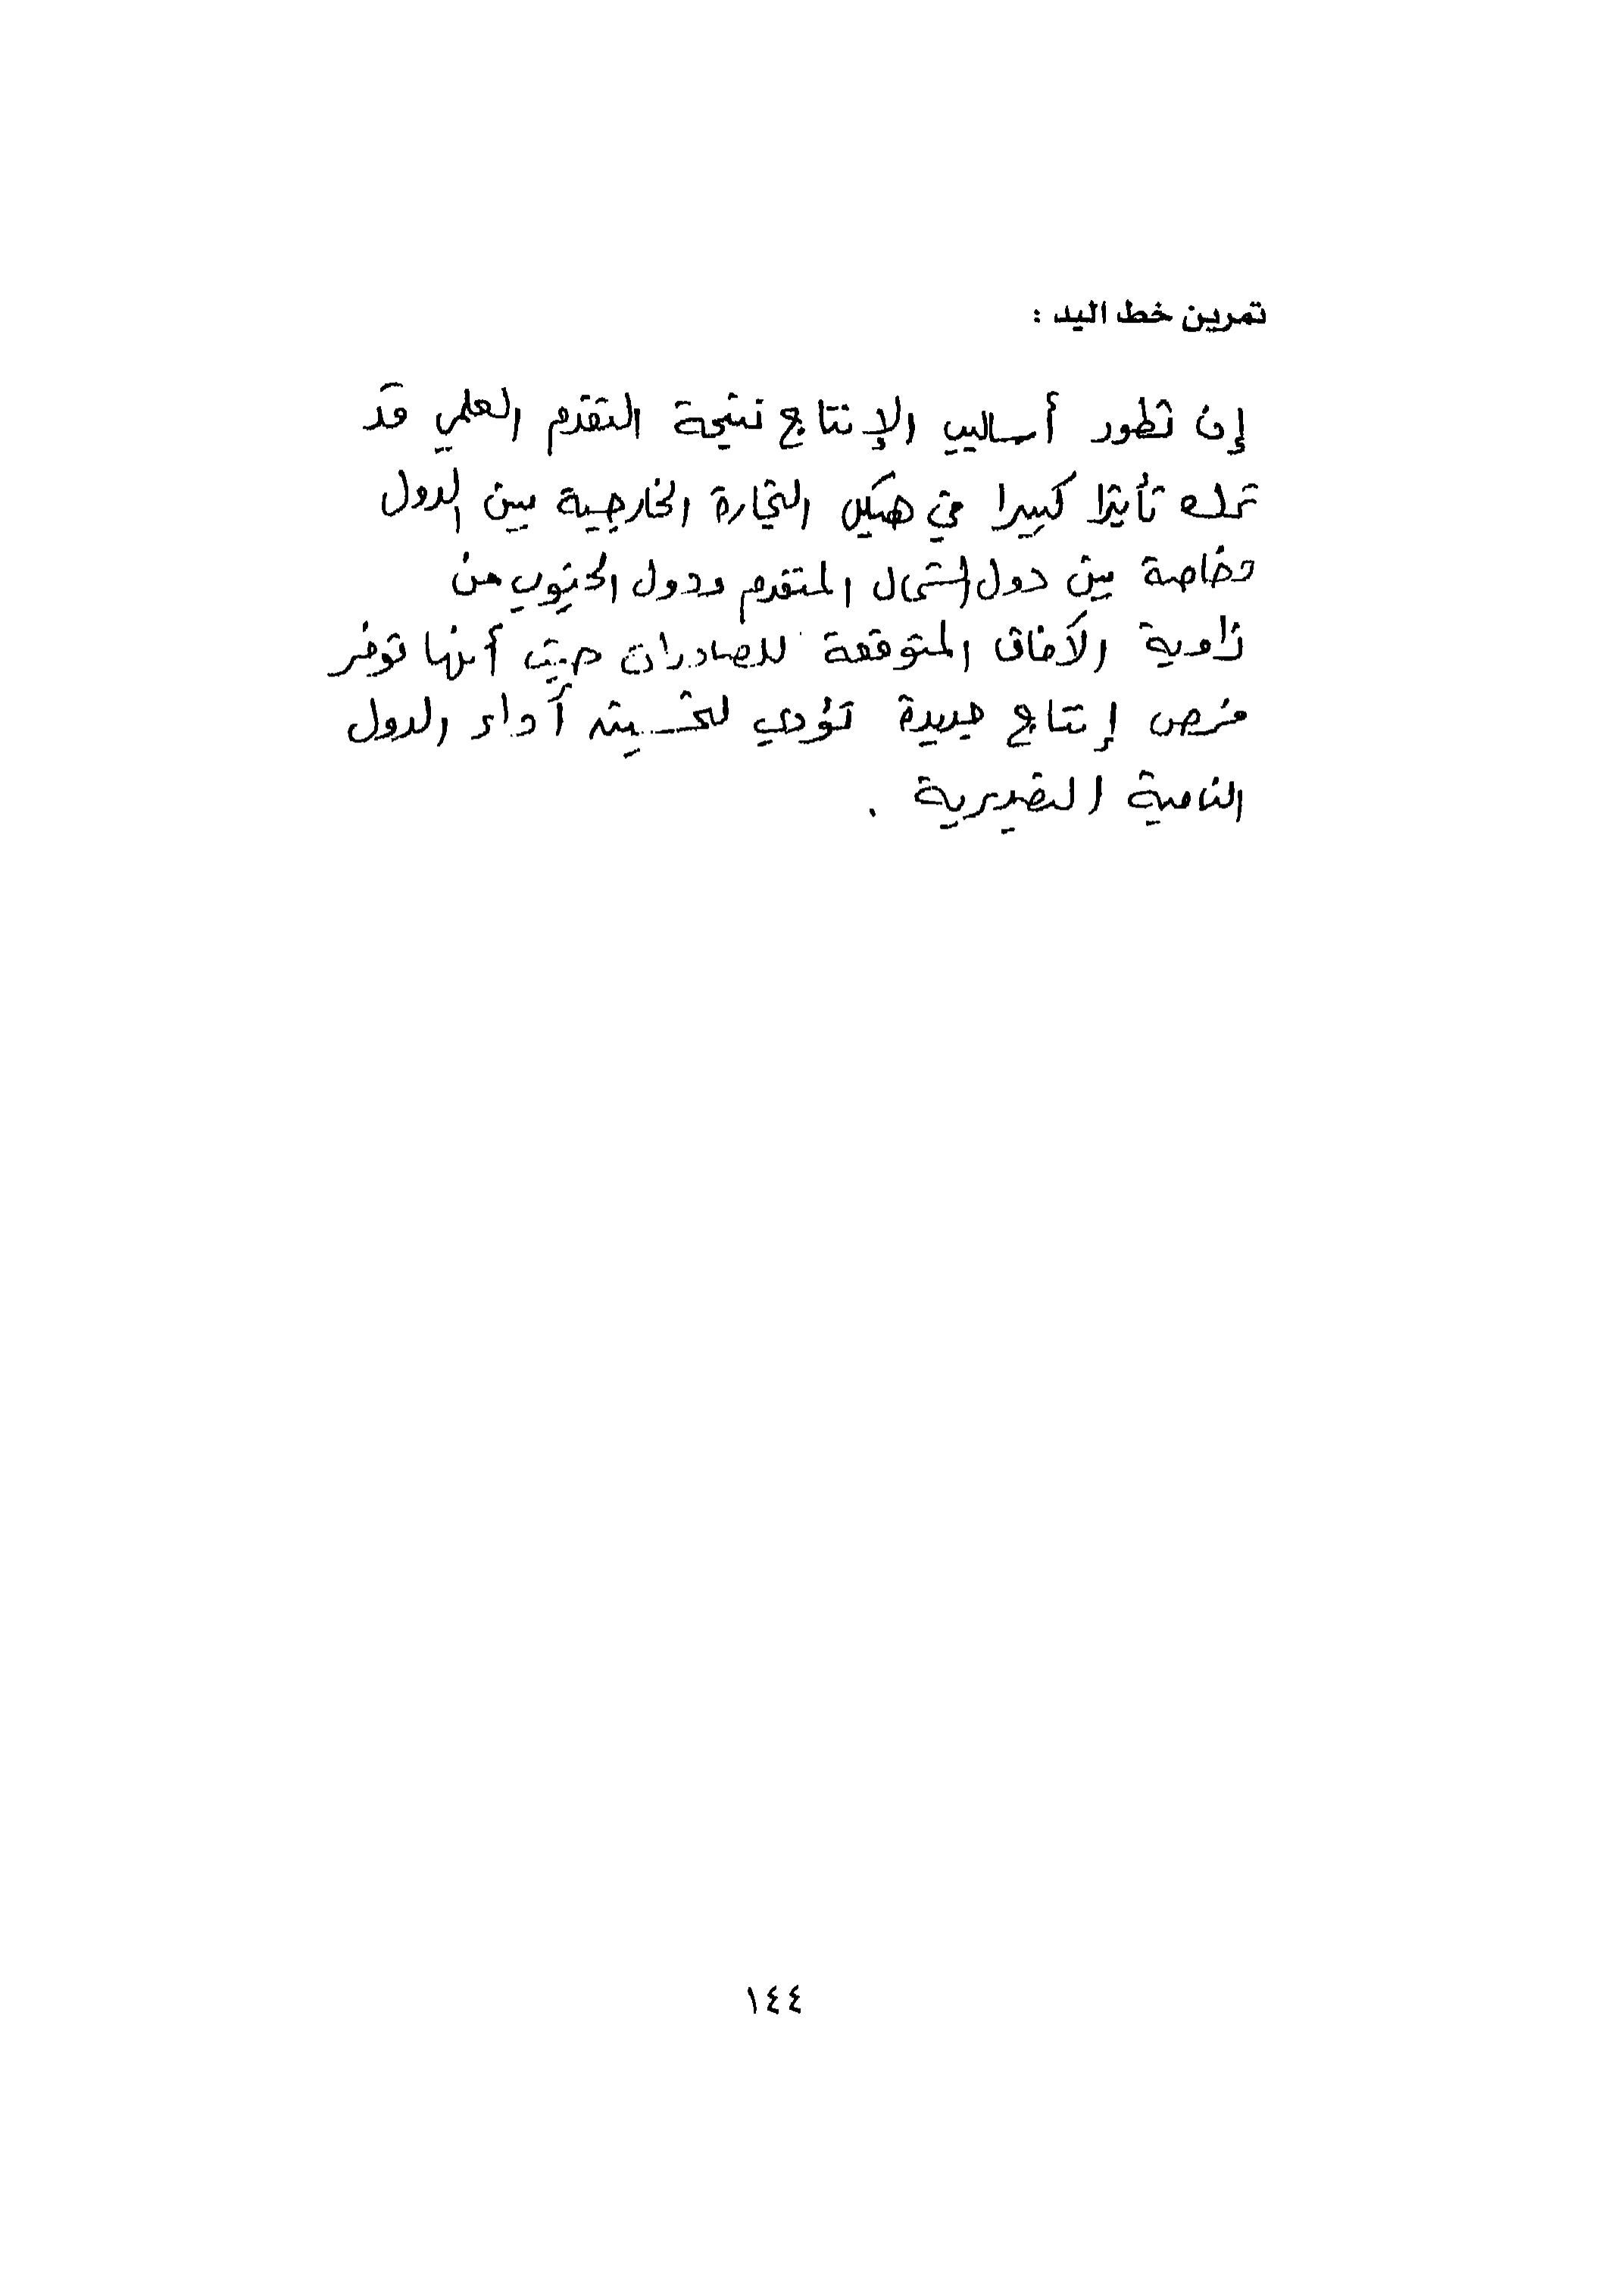 تمرين خط اليد :
إن تطور أساليب الإنتاج نتيجة التقدم العلمي قد
ترك تأثيرا كبيرا في هيكل التجارة الخارجية بين الدول
وخاصة بين دول الشمال المتقدم ودول الجنوب من
زاوية الآفاق المتوقعة للصادرات حيث أنها توفر
فرص إنتاج جديدة تؤدي لتحسين أداء الدول
النامية التصديرية .
١٤٤